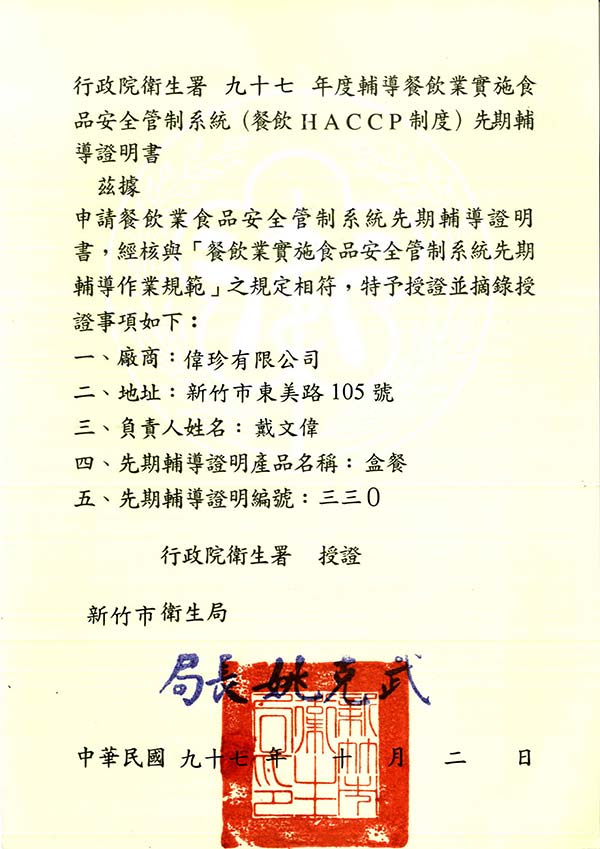 行政院衛生署 九十七 年度輔導餐飲業實施食
品安全管制系統（餐飲HACCP制度）先期輔
導證明書
茲據
申請餐飲業食品安全管制系統先期輔導證明
書，經核與「餐飲業實施食品安全管制系統先期
輔導作業規範」之規定相符，特予授證並摘錄授
證事項如下：
一、廠商：偉珍有限公司
二、地址：新竹市東美路105號
三、負責人姓名：戴文偉
四、先期輔導證明產品名稱：盒餐
五、先期輔導證明編號：三三0
行政院衛生署 授證
新竹市衛生局
局長姚克武
中華民國 九十七 年 十 月 二 日